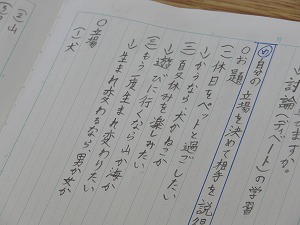 討論(ディベート)の学習
め 自分の立場を決めて相手を説得
○お題
(一)休日をペットと過ごしたい
↓かうなら、犬かねこか
(二)夏休みを楽しみたい
↓遊びに行くなら山か海か
(三)もう一度生まれ変わりたい
生まれ変わるなら、男か女か
○立場
(一)犬
(二)山